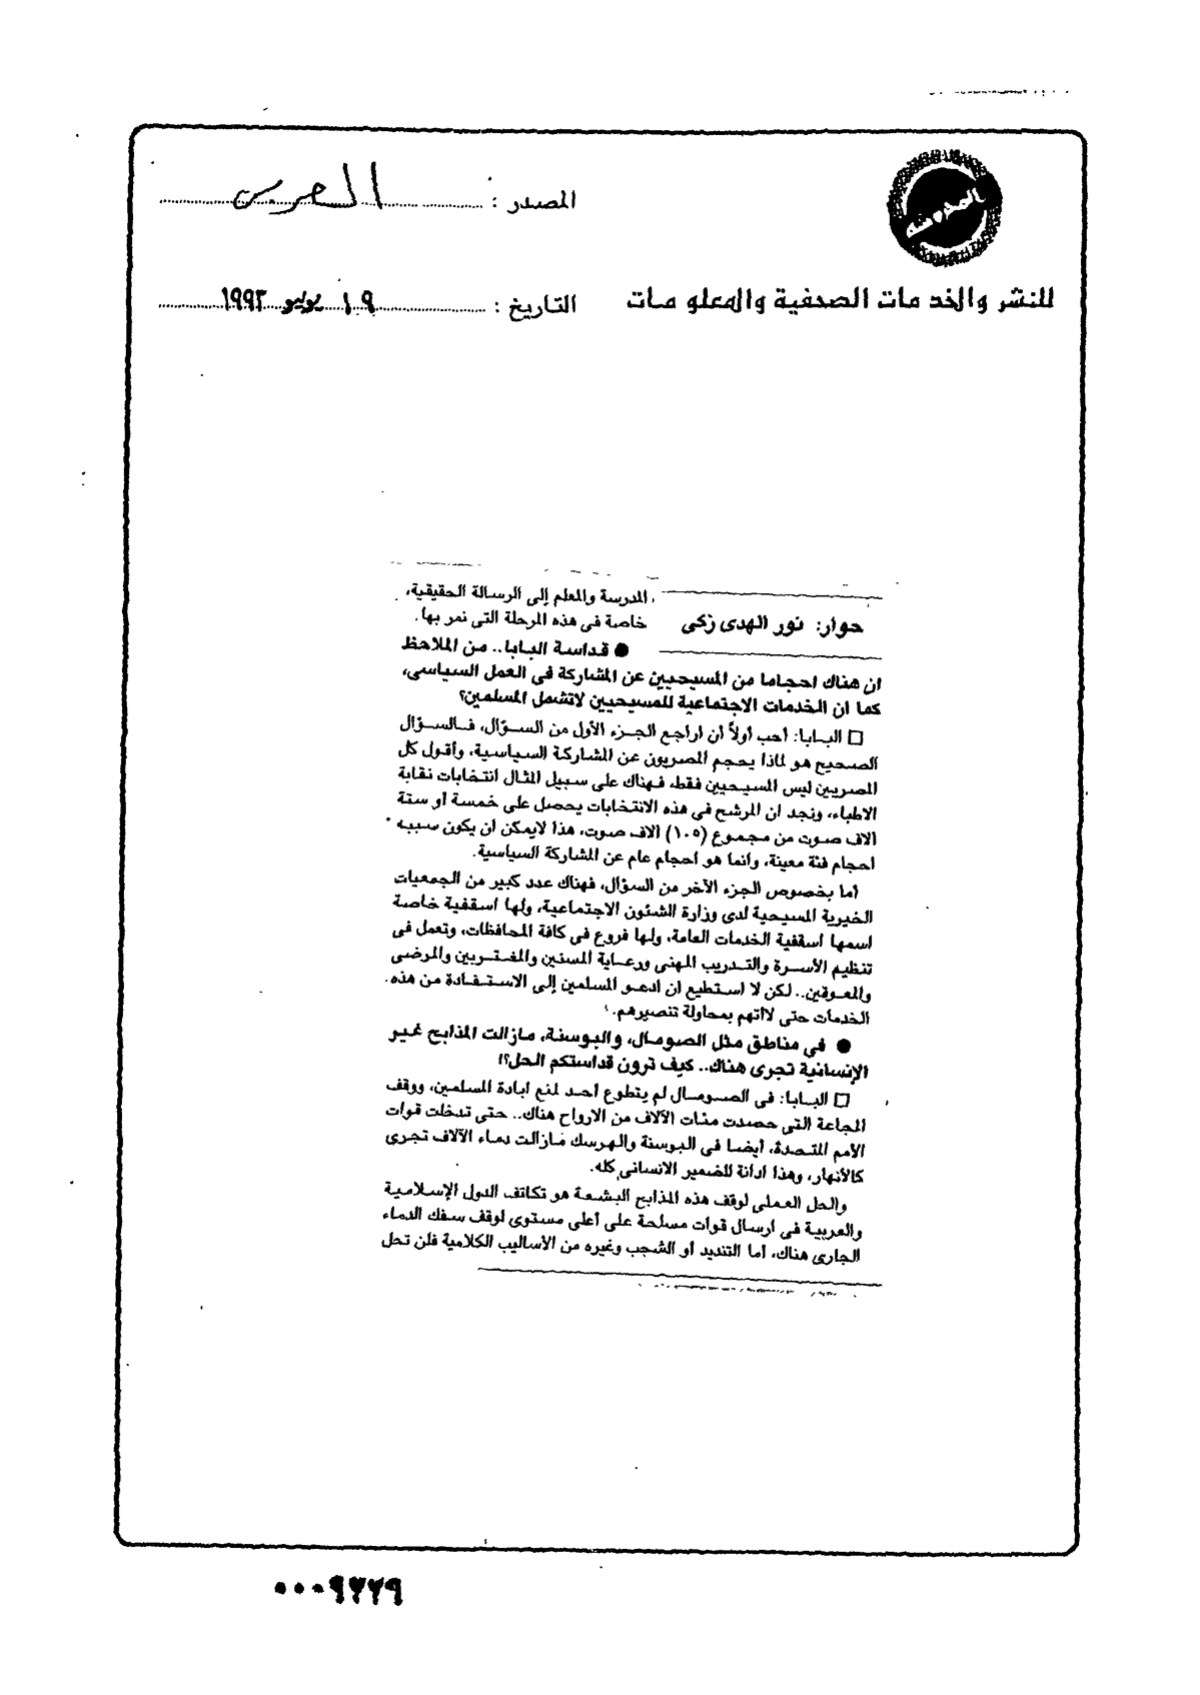 المصدر : العربى
للنشر والخدمات الصحفية والمعلومات
التاريخ : ١٩ يوليو ١٩٩٣
حوار: نور الهدى زكى
المدرسة والمعلم إلى الرسالة الحقيقية،
خاصة فى هذه المرحلة التى نمر بها.
● قداسة البابا.. من الملاحظ
ان هناك احجاما من المسيحيين عن المشاركة فى العمل السياسى،
كما ان الخدمات الاجتماعية للمسيحيين لاتشمل المسلمين؟
□ البابا: أحب أولاً أن أراجع الجزء الأول من السؤال، فالسؤال
الصحيح هو لماذا يحجم المصريون عن المشاركة السياسية، وأقول كل
المصريين ليس المسيحيين فقط، فهناك على سبيل المثال انتخابات نقابة
الاطباء، ونجد ان المرشح فى هذه الانتخابات يحصل على خمسة أو ستة
آلاف صوت من مجموع (١٠٥) آلاف صوت، هذا لايمكن ان يكون سببه
احجام فئة معينة، وانما هو احجام عام عن المشاركة السياسية.
أما بخصوص الجزء الآخر من السؤال، فهناك عدد كبير من الجمعيات
الخيرية المسيحية لدى وزارة الشئون الاجتماعية، ولها اسقفية خاصة
اسمها أسقفية الخدمات العامة، ولها فروع فى كافة المحافظات، وتعمل فى
تنظيم الأسرة والتدريب المهنى ورعاية المسنين والمغتربين والمرضى
والمعوقين.. لكن لا استطيع ان ادعو المسلمين إلى الاستفادة من هذه
الخدمات حتى لااتهم بمحاولة تنصيرهم.
● فى مناطق مثل الصومال، والبوسنة، مازالت المذابح غير
الإنسانية تجرى هناك.. كيف ترون قداستكم الحل؟!
□ البابا: فى الصومال لم يتطوع أحد لمنع ابادة المسلمين، ووقف
المجاعة التى حصدت مئات الآلاف من الارواح هناك.. حتى تدخلت قوات
الأمم المتحدة، أيضا فى البوسنة والهرسك مازالت دماء الآلاف تجرى
كالأنهار، وهذا ادانة للضمير الانسانى كله.
والحل العملى لوقف هذه المذابح البشعة هو تكاتف الدول الإسلامية
والعربية فى ارسال قوات مسلحة على أعلى مستوى لوقف سفك الدماء
الجارى هناك، أما التنديد أو الشجب وغيره من الأساليب الكلامية فلن تحل
٠٠٠٩٢٢٩